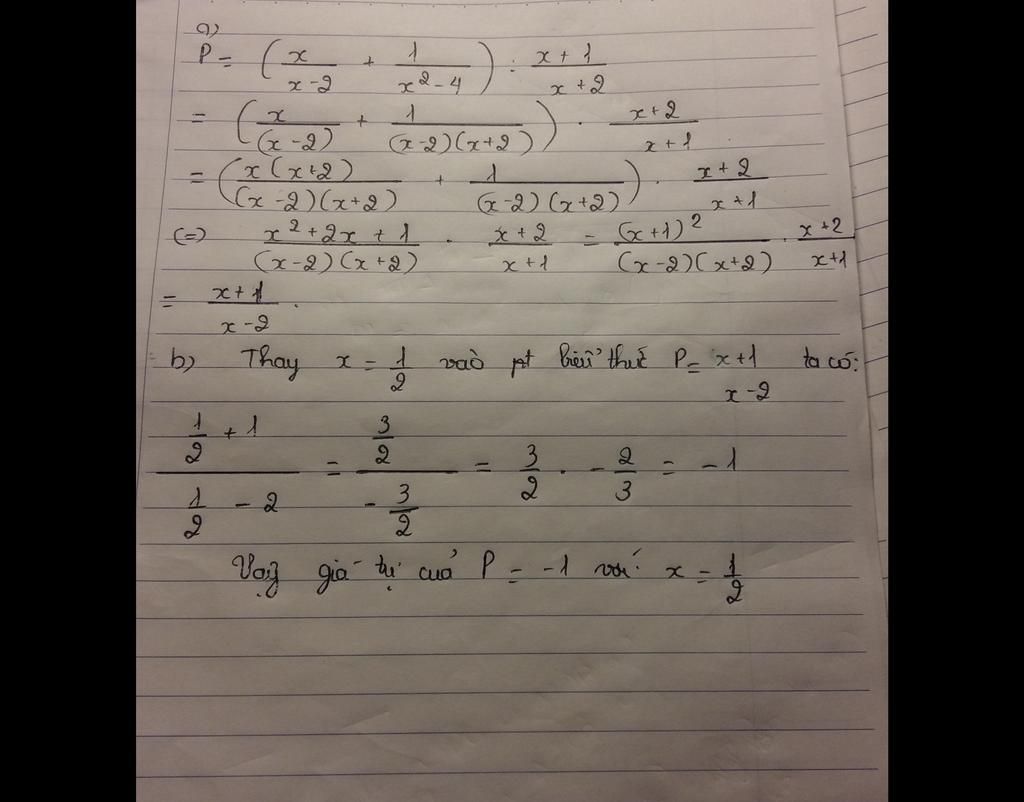 a)
P = ( x/(x-2) + 1/(x²-4) ) : (x+1)/(x+2)
= ( x/(x-2) + 1/((x-2)(x+2)) ) . (x+2)/(x+1)
= ( x(x+2)/((x-2)(x+2)) + 1/((x-2)(x+2)) ) . (x+2)/(x+1)
(=) (x²+2x+1)/((x-2)(x+2)) . (x+2)/(x+1) = (x+1)²/((x-2)(x+2)) . (x+2)/(x+1)
= (x+1)/(x-2) .
b) Thay x = 1/2 vào pt biểu thức P = (x+1)/(x-2) ta có:
(1/2 + 1)/(1/2 - 2) = (3/2)/(-3/2) = 3/2 . -2/3 = -1
Vậy giá trị của P = -1 với x = 1/2